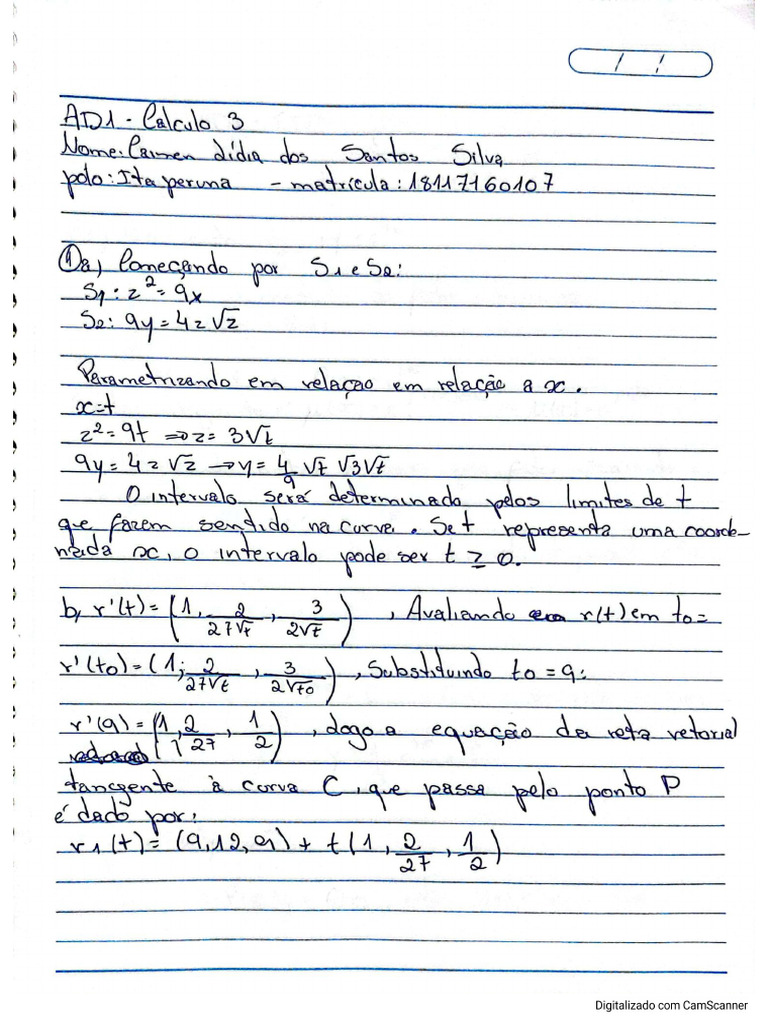 / /
AD1 - Calculo 3
Nome: Carmen Lídia dos Santos Silva
polo: Itaperuna - matrícula: 18117160107
1a) Começando por S1 e S2:
S1: z² = 9x
S2: 9y = 4z√z
Parametrizando em relaçao em relação a x.
x=t
z² = 9t ⇒ z = 3√t
9y = 4z√z → y = 4/9 √t √3√t
O intervalo será determinado pelos limites de t
que fazem sendido na curva. Se t representa uma coorde-
nada x, o intervalo pode ser t ≥ 0.
b, r'(t) = (1, 2/27√t, 3/2√t), Avaliando r(t) em to=
r'(to) = (1; 2/27√t, 3/2√to), Substituindo to = 9:
r'(9) = (1, 2/27, 1/2), Logo a equação da reta vetorial
tangente à curva C, que passa pelo ponto P
é dado por:
r1(t) = (9,12,9) + t(1, 2/27, 1/2)
Digitalizado com CamScanner